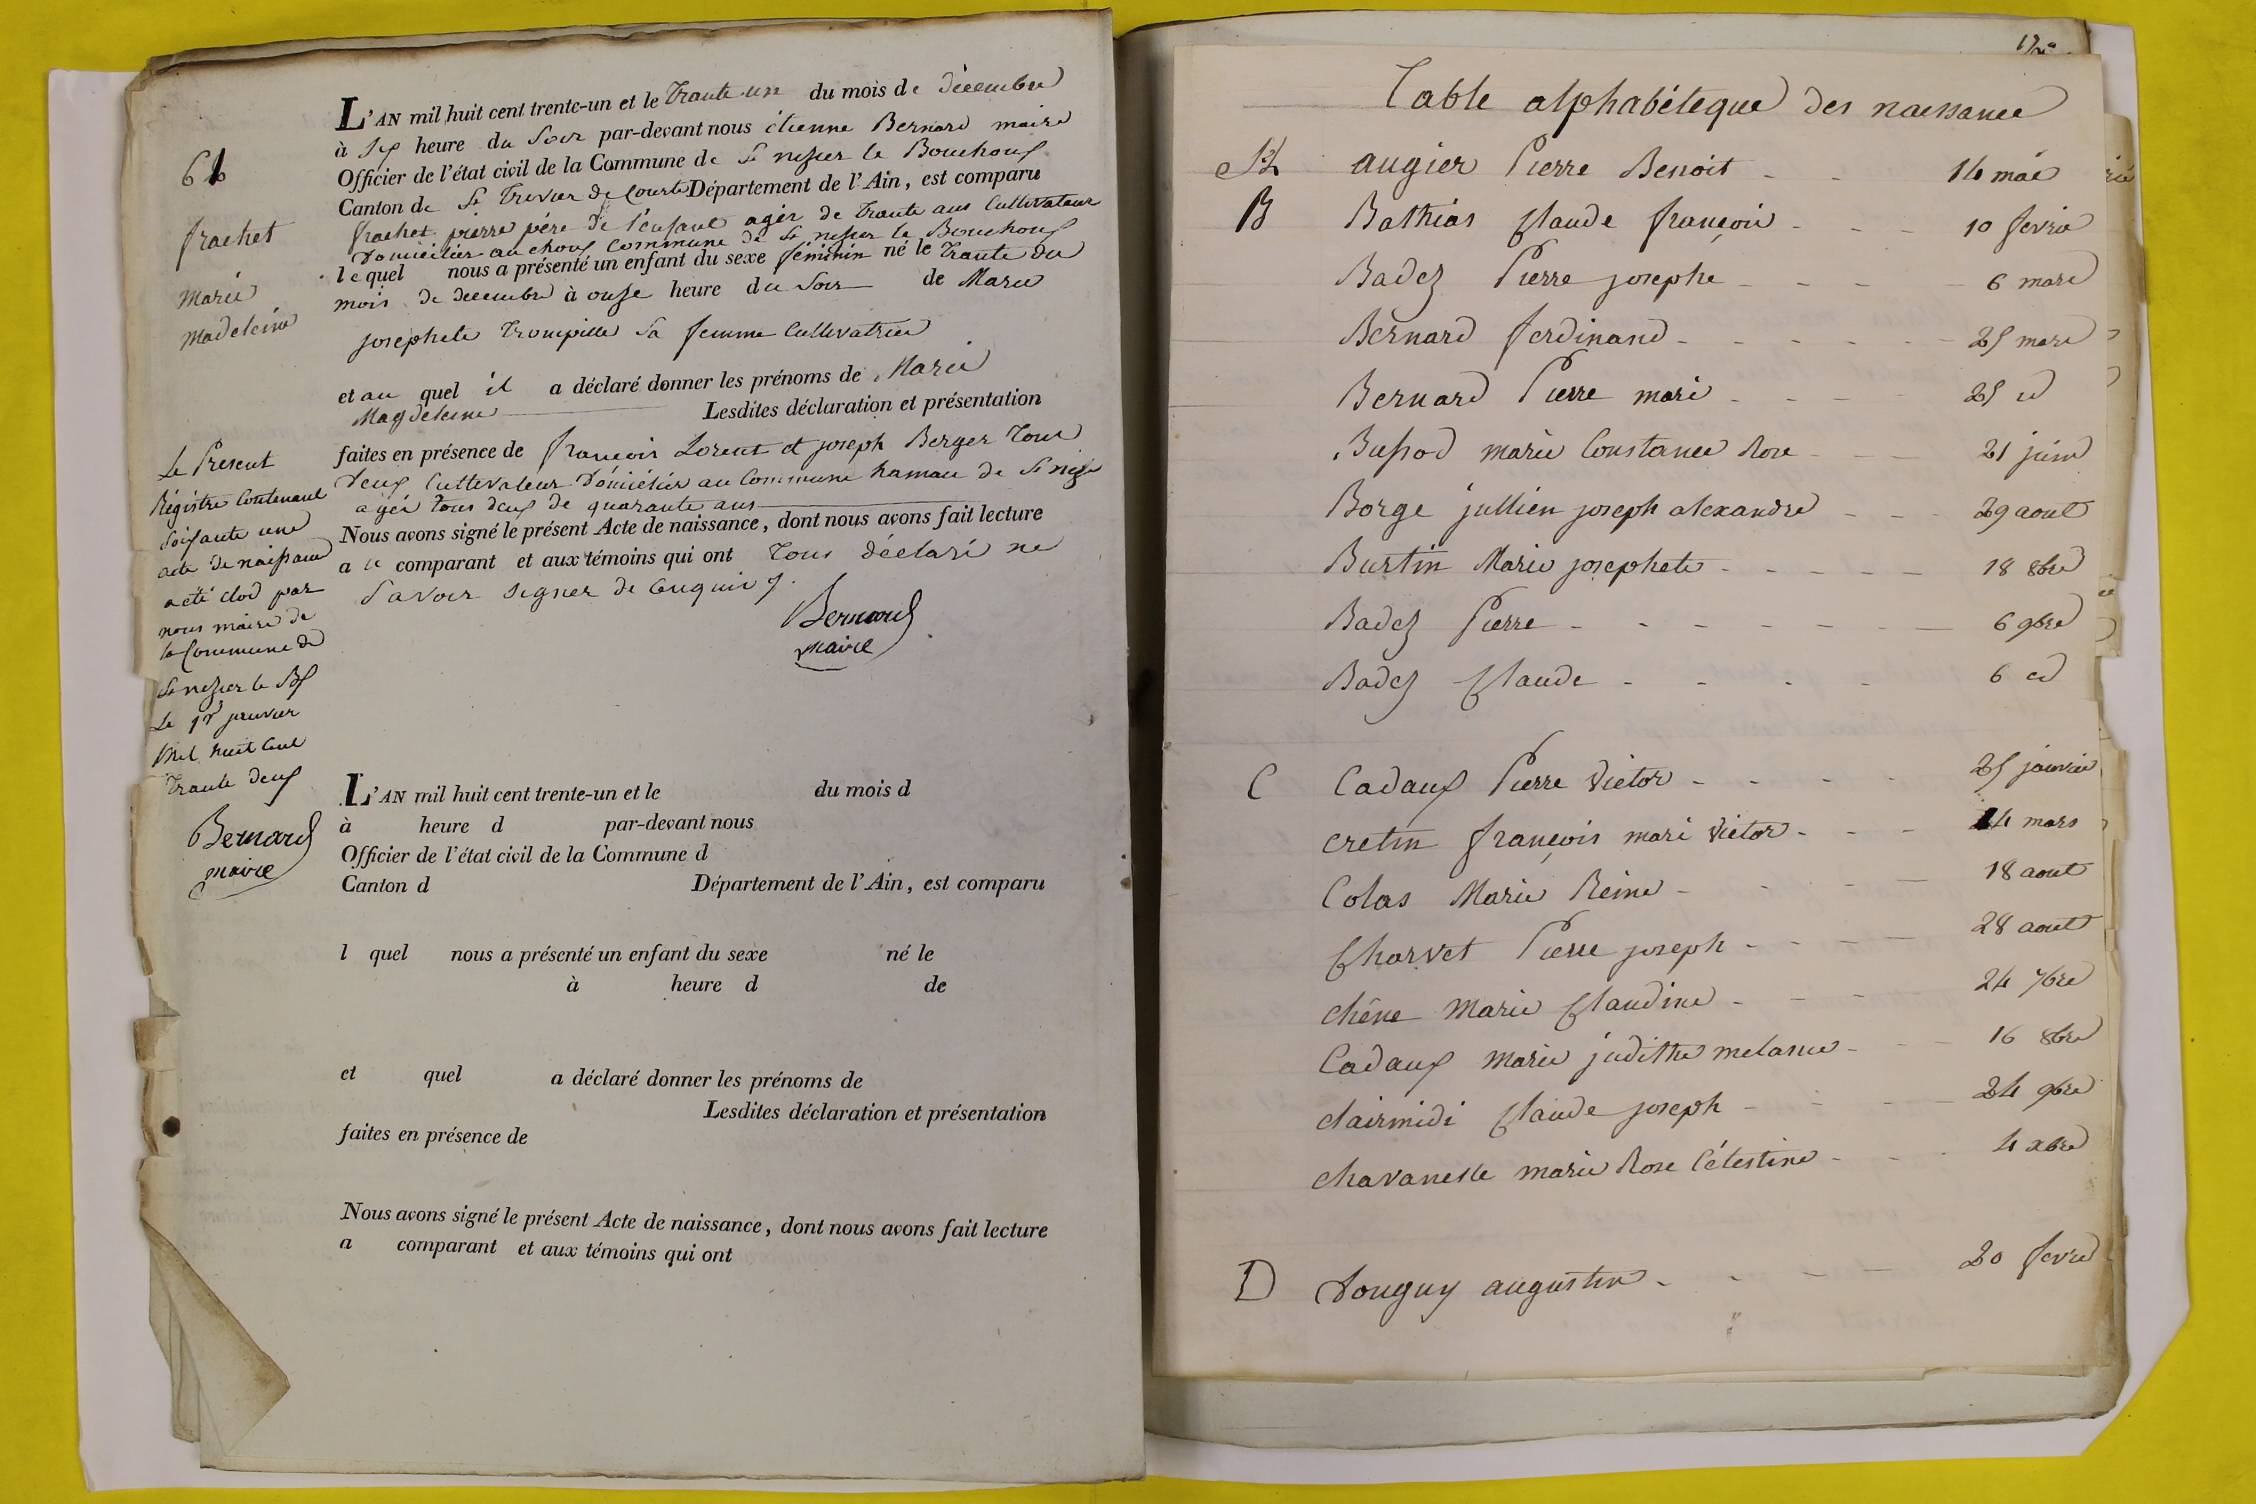 61
frachet
marie
madeleine
L'AN mil huit cent trente-un et le trante un du mois de décembre
à six heure du Soir par-devant nous étienne Bernard maire
Officier de l'état civil de la Commune de St nisier le Bouchoux
Canton de St Trivier de Courte Département de l'Ain, est comparu
frachet pierre pére de l'enfant agér de trante ans Cultivateur
Domicilier au choux Commune de St nisier le Bouchoux
lequel nous a présenté un enfant du sexe féminin né le trante du
mois de decembre à onze heure du Soir de Marie
josephete trompille Sa femme Cultivatrice
et au quel il a déclaré donner les prénoms de Marie
Magdeleine Lesdites déclaration et présentation
faites en présence de françois Lorent et joseph Berger tous
deux Cultevateur Domiciliés au Commune hamau de St nizie
agér tous deux de quarante ans
Nous avons signé le présent Acte de naissance, dont nous avons fait lecture
a ce comparant et aux témoins qui ont tous déclaré ne
Savoir signer de Cenquis
Bernard
maire
Le Present
Régistre Contenant
Soisante une
acte de naissance
a été clod par
nous maire de
la Commune de
St nizier le Bx
Le 1r janvier
Mil huit Cent
trante deux
Bernard
maire
L'AN mil huit cent trente-un et le du mois d
à heure d par-devant nous
Officier de l'état civil de la Commune d
Canton d Département de l'Ain, est comparu
l quel nous a présenté un enfant du sexe né le
à heure d de
et quel a déclaré donner les prénoms de
Lesdites déclaration et présentation
faites en présence de
Nous avons signé le présent Acte de naissance, dont nous avons fait lecture
a comparant et aux témoins qui ont
Table alphabéteque des naissance
A augier Pierre Benoit - - 14 mai
B Bathias Claude françois - - - 10 fevrie
Badez Pierre josephe - - - - 6 mars
Bernard ferdinand - - - - - - 25 mars
Bernard Pierre mari - - - - 25 id
Bussod marie Constance Rose - - - 21 juin
Borge jullien joseph alexandre - - - 29 aout
Burtin Marie josephete - - - - - 18 8bre
Badez Pierre - - - - - - - - 6 9bre
Badez Claude - - - - 6 id
C Cadaux Pierre victor - - - - 25 janvier
cretin françois mari victor - - - 14 mars
Colas Marie Reine - - - - 18 aout
Charvet Pierre joseph - - - - 28 aout
chêne Marie Claudine - - - 24 7bre
Cadaux marie judithe melanie - - - 16 8bre
clairmidi Claude joseph - - - 24 9bre
chavanelle marie Rose Célestine - - - 4 xbre
D Douguy augustin - - - - 20 fevrie